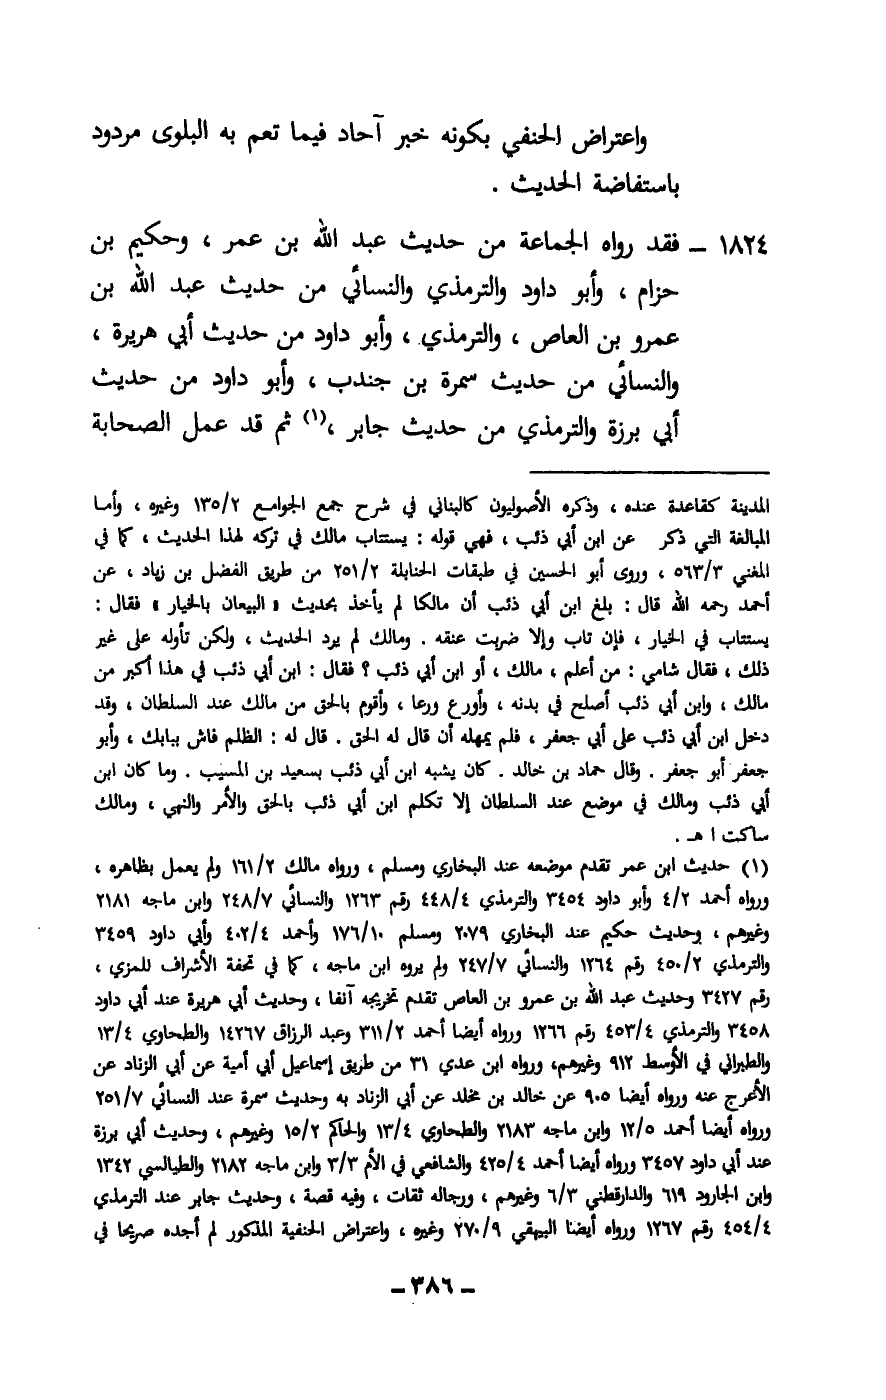 واعتراض الحنفي بكونه خبر آحاد فيما تعم به البلوى مردود
باستفاضة الحديث .
١٨٢٤ ــ فقد رواه الجماعة من حديث عبد الله بن عمر ، وحكيم بن
حزام ، وأبو داود والترمذي والنسائي من حديث عبد الله بن
عمرو بن العاص ، والترمذي ، وأبو داود من حديث أبي هريرة ،
والنسائي من حديث سمرة بن جندب ، وأبو داود من حديث
أبي برزة والترمذي من حديث جابر ،(١) ثم قد عمل الصحابة
المدينة كقاعدة عنده ، وذكره الأصوليون كالبناني في شرح جمع الجوامع ١٣٥/٢ وغيره ، وأما
المبالغة التي ذكر عن ابن أبي ذئب ، فهي قوله : يستتاب مالك في تركه لهذا الحديث ، كما في
المغني ٥٦٣/٣ ، وروى أبو الحسين في طبقات الحنابلة ٢٥١/٢ من طريق الفضل بن زياد ، عن
أحمد رحمه الله قال : بلغ ابن أبي ذئب أن مالكا لم يأخذ بحديث « البيعان بالخيار » فقال :
يستتاب في الخيار ، فإن تاب وإلا ضربت عنقه . ومالك لم يرد الحديث ، ولكن تأوله على غير
ذلك ، فقال شامي : من أعلم ، مالك ، أو ابن أبي ذئب ؟ فقال : ابن أبي ذئب في هذا أكبر من
مالك ، وابن أبي ذئب أصلح في بدنه ، وأورع ورعا ، وأقوم بالحق من مالك عند السلطان ، وقد
دخل ابن أبي ذئب على أبي جعفر ، فلم يمهله أن قال له الحق . قال له : الظلم فاش ببابك ، وأبو
جعفر أبو جعفر . وقال حماد بن خالد . كان يشبه ابن أبي ذئب بسعيد بن المسيب . وما كان ابن
أبي ذئب ومالك في موضع عند السلطان إلا تكلم ابن أبي ذئب بالحق والأمر والنهي ، ومالك
ساكت ا هـ .
(١) حديث ابن عمر تقدم موضعه عند البخاري ومسلم ، ورواه مالك ١٦١/٢ ولم يعمل بظاهره ،
ورواه أحمد ٤/٢ وأبو داود ٣٤٥٤ والترمذي ٤٤٨/٤ رقم ١٢٦٣ والنسائي ٢٤٨/٧ وابن ماجه ٢١٨١
وغيرهم ، وحديث حكيم عند البخاري ٢٠٧٩ ومسلم ١٧٦/١٠ وأحمد ٤٠٢/٤ وأبي داود ٣٤٥٩
والترمذي ٤٥٠/٢ رقم ١٢٦٤ والنسائي ٢٤٧/٧ ولم يروه ابن ماجه ، كما في تحفة الأشراف للمزي ،
رقم ٣٤٢٧ وحديث عبد الله بن عمرو بن العاص تقدم تخريجه آنفا ، وحديث أبي هريرة عند أبي داود
٣٤٥٨ والترمذي ٤٥٣/٤ رقم ١٢٦٦ ورواه أيضا أحمد ٣١١/٢ وعبد الرزاق ١٤٢٦٧ والطحاوي ١٣/٤
والطبراني في الأوسط ٩١٢ وغيرهم، ورواه ابن عدي ٣١ من طريق إسماعيل أبي أمية عن أبي الزناد عن
الأعرج عنه ورواه أيضا ٩٠٥ عن خالد بن مخلد عن أبي الزناد به وحديث سمرة عند النسائي ٢٥١/٧
ورواه أيضا أحمد ١٢/٥ وابن ماجه ٢١٨٣ والطحاوي ١٣/٤ والحاكم ١٥/٢ وغيرهم ، وحديث أبي برزة
عند أبي داود ٣٤٥٧ ورواه أيضا أحمد ٤٢٥/٤ والشافعي في الأم ٣/٣ وابن ماجه ٢١٨٢ والطيالسي ١٣٤٢
وابن الجارود ٦١٩ والدارقطني ٦/٣ وغيرهم ، ورجاله ثقات ، وفيه قصة ، وحديث جابر عند الترمذي
٤٥٤/٤ رقم ١٢٦٧ ورواه أيضا البيهقي ٢٧٠/٩ وغيره ، واعتراض الحنفية المذكور لم أجده صريحا في
ــ ٣٨٦ ــ